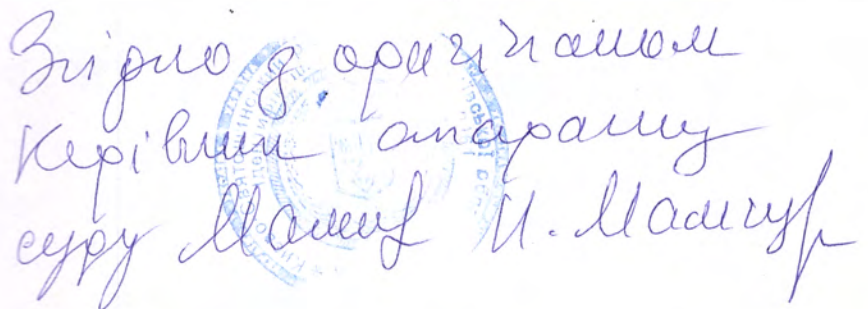 Згідно з оригіналом
Керівник апарату
суду И. Мамчур